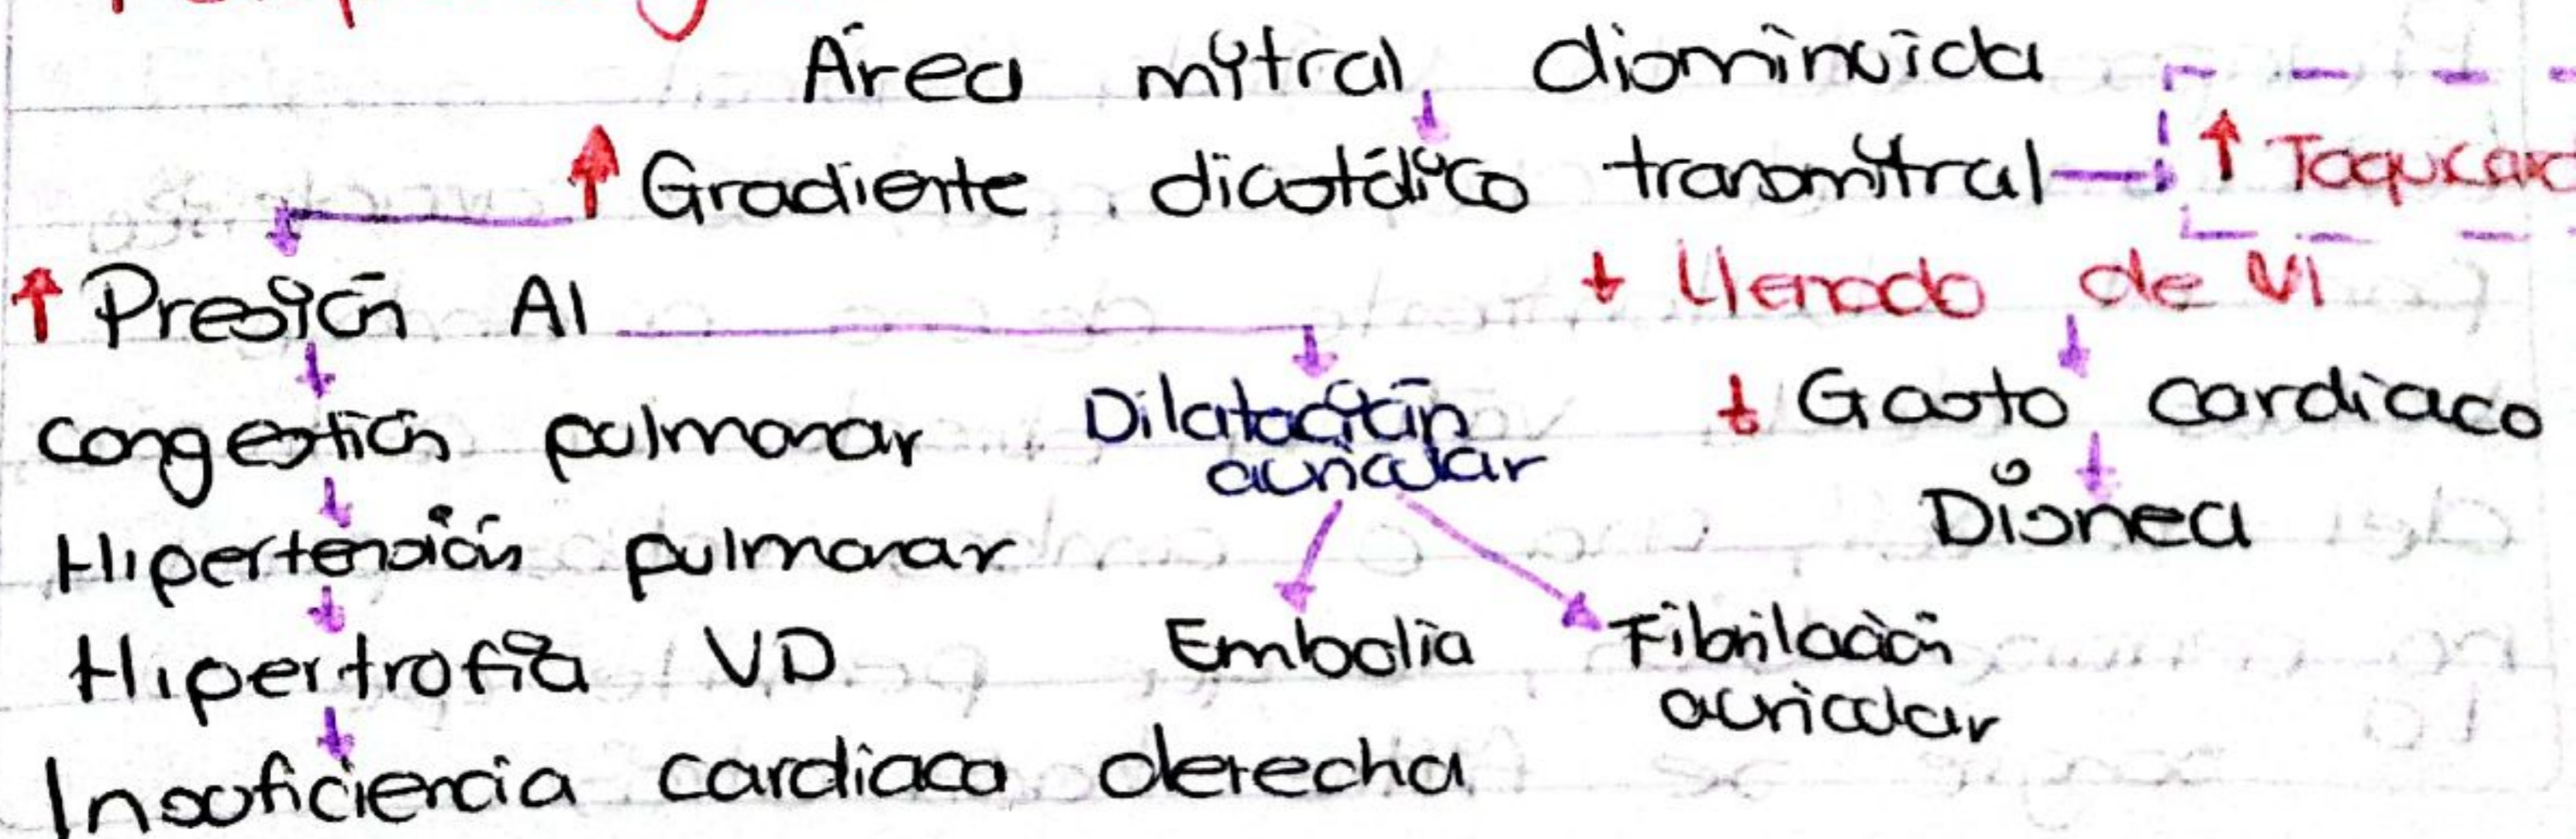 Área mitral disminuida
↑ Gradiente diastólico transmitral → ↑ Taquicard
↑ Presión AI
↓ Llenado de VI
Congestión pulmonar
Dilatación
auricular
↓ Gasto cardiaco
Hipertensión pulmonar
Disnea
Hipertrofia VD
Embolia
Fibrilación
auricular
Insuficiencia cardiaca derecha